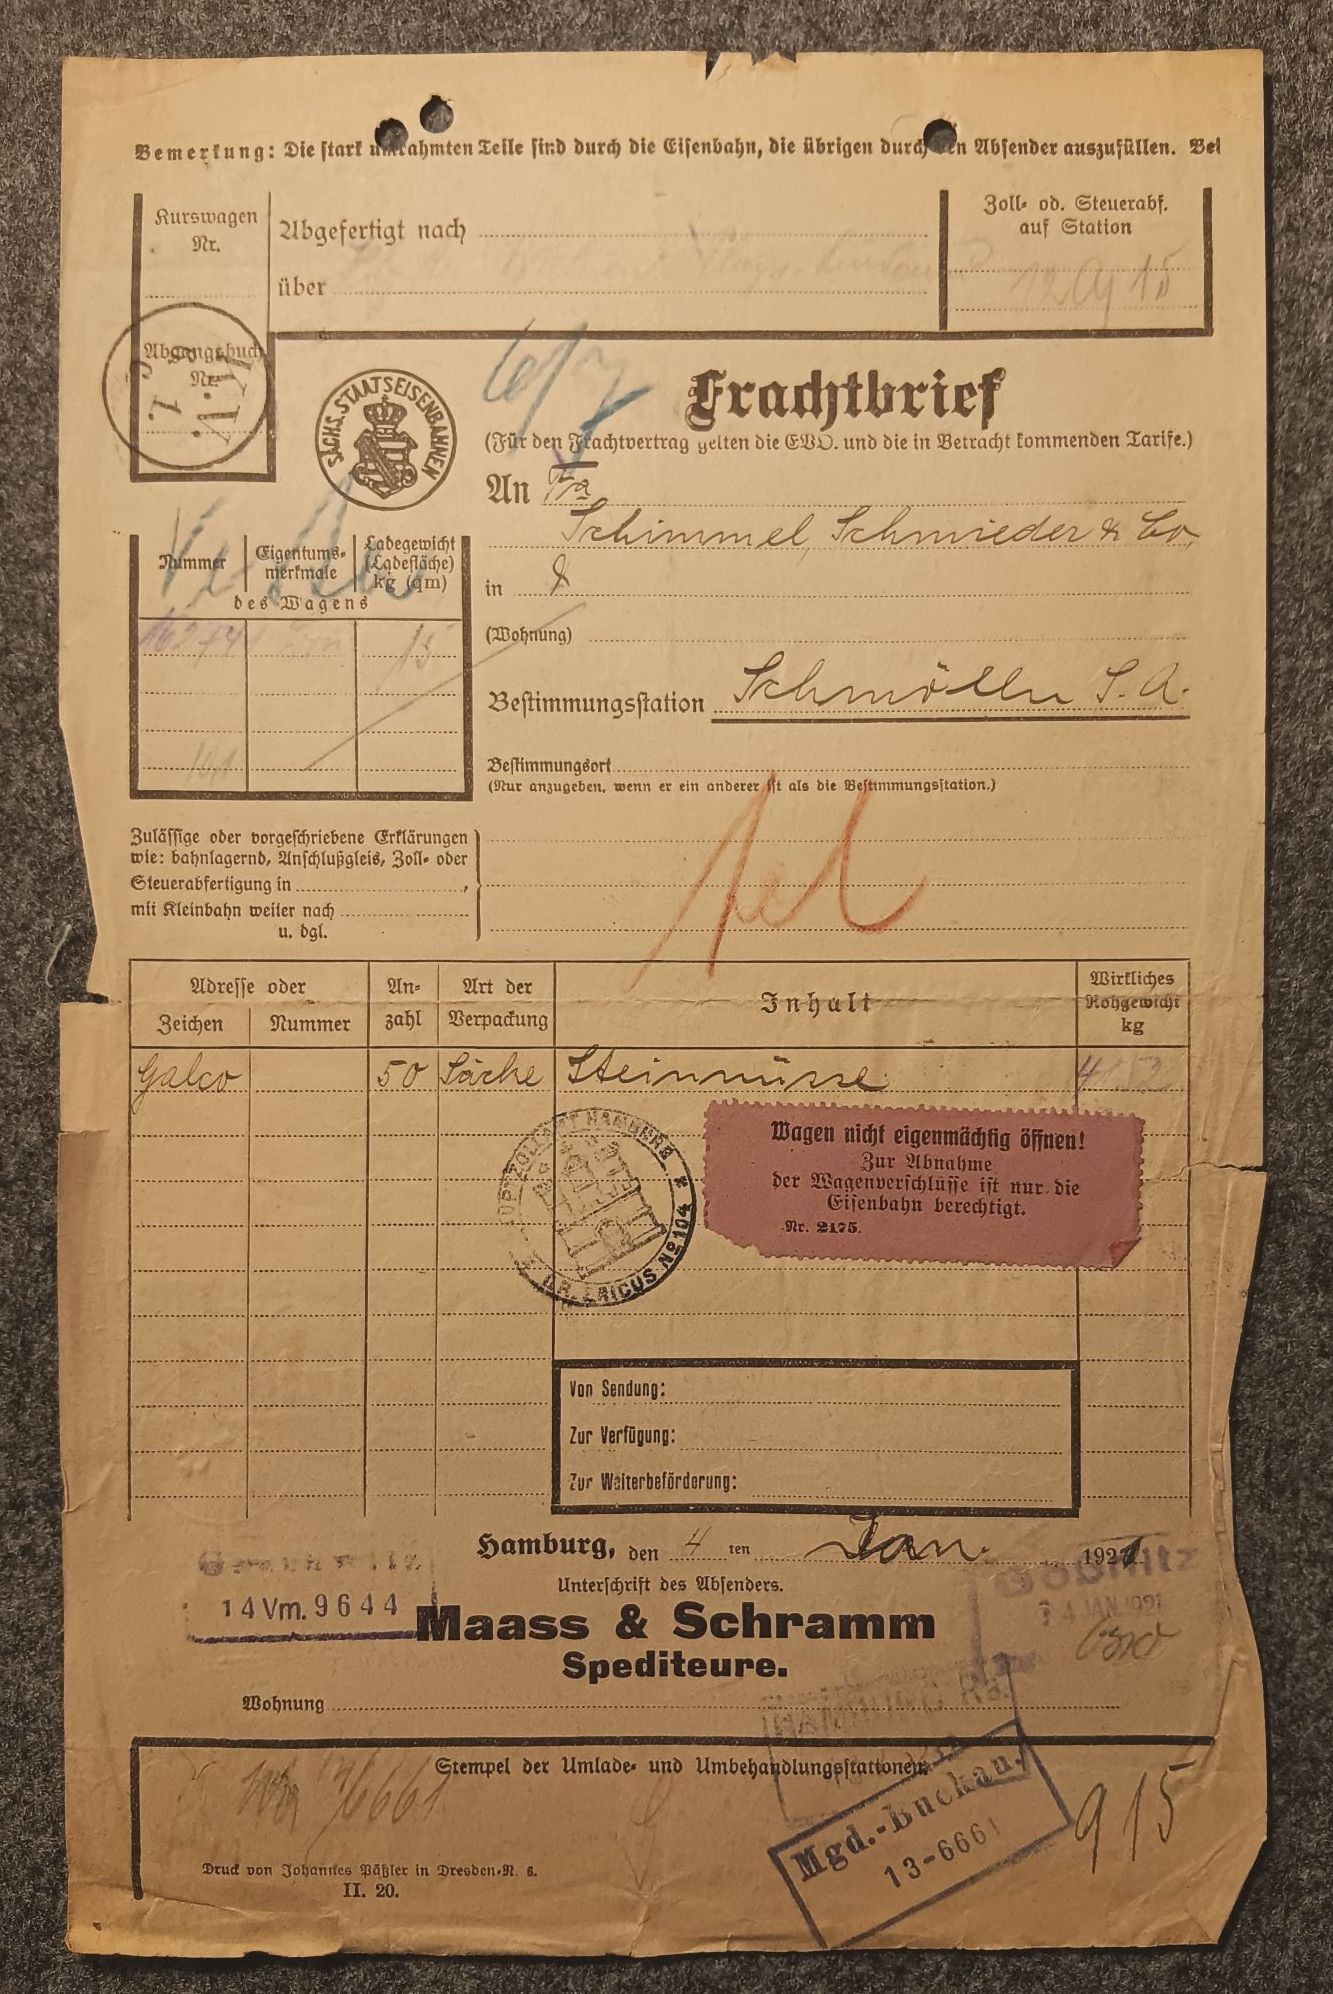 Bemerkung: Die stark umrahmten Teile sind durch die Eisenbahn, die übrigen durch den Absender auszufüllen. Bei
Kurswagen
Nr.
Abgefertigt nach
über
Zoll- od. Steuerabf.
auf Station
Abgangsbuch
Nr.
SÄCHS. STAATSEISENBAHNEN
Frachtbrief
(Für den Frachtvertrag gelten die EVO. und die in Betracht kommenden Tarife.)
An Fa
Schimmel, Schmieder & Co,
in
(Wohnung)
Nummer
Eigentums-
merkmale
Ladegewicht
(Ladefläche)
kg (qm)
des Wagens
15
Bestimmungsstation Schmölln S. A.
Bestimmungsort
(Nur anzugeben, wenn er ein anderer ist als die Bestimmungsstation.)
Zulässige oder vorgeschriebene Erklärungen
wie: bahnlagernd, Anschlußgleis, Zoll- oder
Steuerabfertigung in ,
mit Kleinbahn weiter nach
u. dgl.
Adresse oder
Zeichen
Nummer
An-
zahl
Art der
Verpackung
Inhalt
Wirkliches
Rohgewicht
kg
Galco 50 Säcke Steinnüsse
Wagen nicht eigenmächtig öffnen!
Zur Abnahme
der Wagenverschlüsse ist nur die
Eisenbahn berechtigt.
Nr. 2175.
HAMBURG
No 104
Von Sendung:
Zur Verfügung:
Zur Weiterbeförderung:
Hamburg, den 4 ten Jan. 1921
Unterschrift des Absenders.
14 Vm. 9644
Gößnitz
14 JAN 1921
Maass & Schramm
Spediteure.
Wohnung
Stempel der Umlade- und Umbehandlungsstationen.
Mgd.-Buckau.
13-6661
915
Druck von Johannes Päßler in Dresden-N. 6.
II. 20.